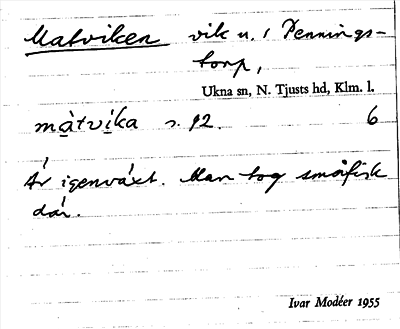 Matviken vik u. / Pennings-
torp,
Ukna sn, N. Tjusts hd, Klm. l.
màtvíka s. 92. 6
Är igenväxt. Man tog småfisk
där.
Ivar Modéer 1955